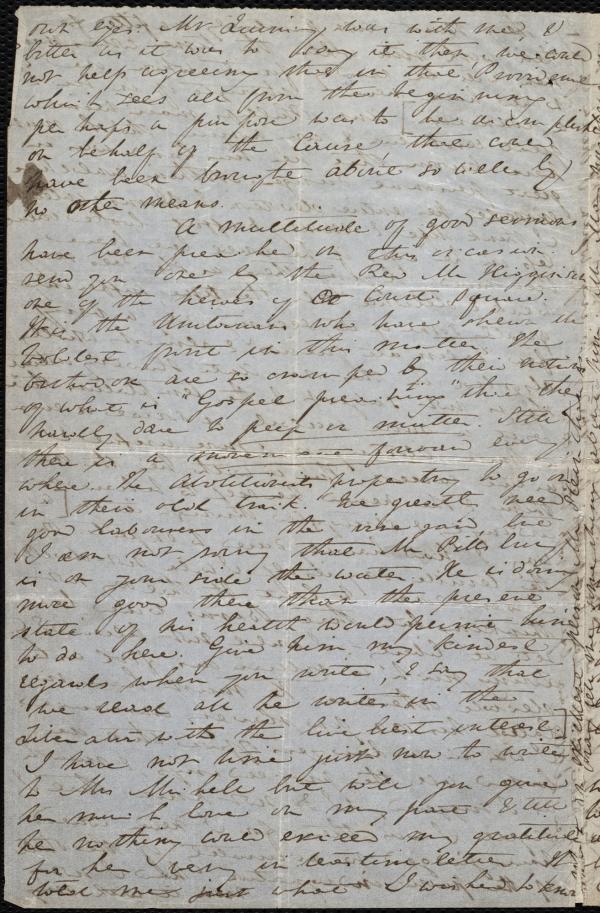 our eyes. Mr Quincy was with me, &
bitter as it was to say it then, we could
not help agreeing that in that Providence
which sees all from the beginning
perhaps a purpose was to [be accomplished
on behalf of the Cause, that could
have been brought about so well by
no other means.
A multitude of good sermons
have been preached on this occasion. I
send you one by the Rev Mr Higginson
one of the heroes of Court Square.
It is the Unitarians who have shewn the
boldest front in this matter. The
orthodox are so cramped by their notions
of what is "Gospel preaching" that they
hardly dare to peep or mutter. Still
there is a movement forward every
where. The Abolitionists propose trying to go on
in their old track. We greatly need
good labourers in the vineyard, but
I am not sorry that Mr Pillsbury
is on your side the water. He is doing
more good there than the present
state of his health would permit him
to do here. Give him my kindest
regards when you write, & say that
we read all he writes in the
Liberator with the liveliest interest.]
I have not time just now to write
to Mrs Michell but will you give
her much love on my part & tell
her nothing could exceed my gratitude
for her very interesting letter. It
told me just what I wished to know